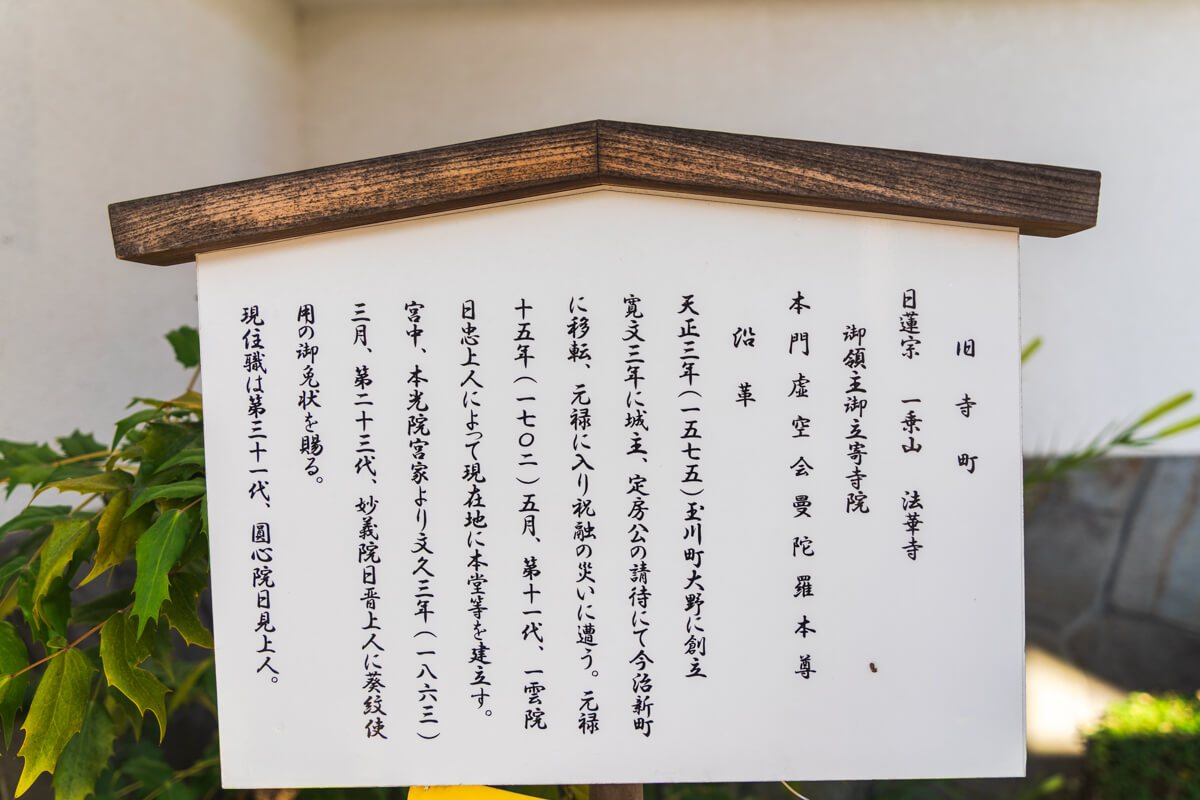 旧寺町
日蓮宗 一乗山 法華寺
御領主御立寄寺院
本門虚空会曼陀羅本尊
沿革
天正三年(一五七五)玉川町大野に創立
寛文三年に城主、定房公の請待にて今治新町
に移転、元禄に入り祝融の災いに遭う。元禄
十五年(一七〇二)五月、第十一代、一雲院
日忠上人によって現在地に本堂等を建立す。
宮中、本光院宮家より文久三年(一八六三)
三月、第二十三代、妙義院日晋上人に葵紋使
用の御免状を賜る。
現住職は第三十一代、圓心院日見上人。